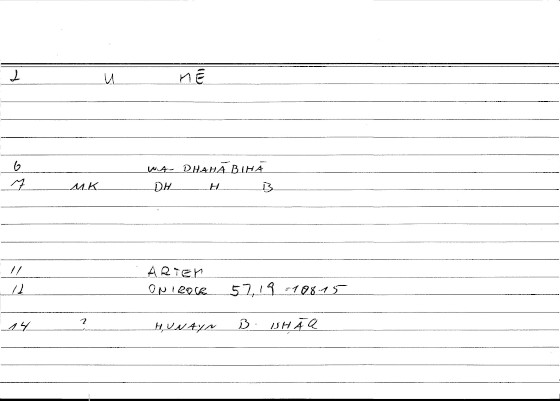 1 U NĒ
6 WA- DHAHĀBIHĀ
7 MK DH H B
11 ARTEM
12 ONIROCR 57,19 -108 15
14 ? ḤUNAYN B. ISHĀQ